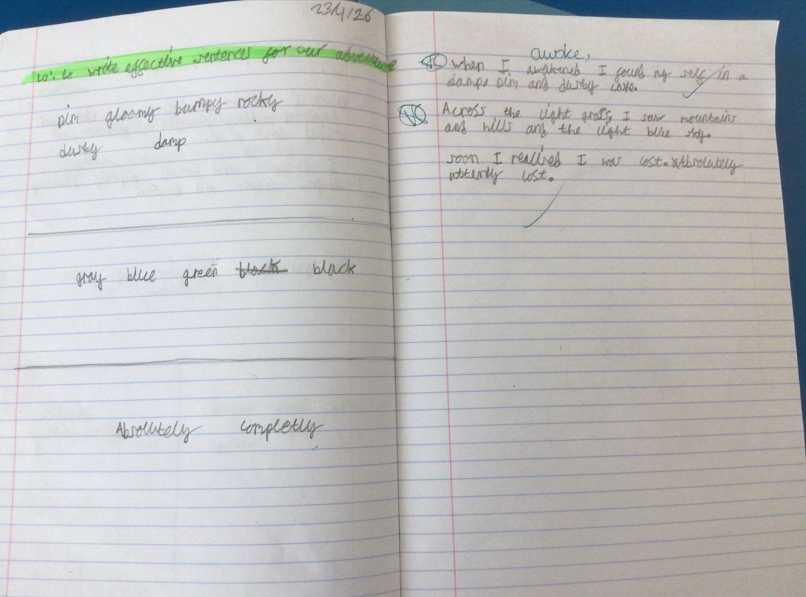 23/1/26
LO: to write effective sentences for our adventure
Dim gloomy bumpy rocky
dusty damp
gray blue green black black
Absolutely completly
awoke,
when I awakened I found my self in a
damp Dim and dusty cave.
Across the light grass, I saw mountains
and hills and the light blue sky.
soon I realised I was lost. Absolutely
utterly lost.